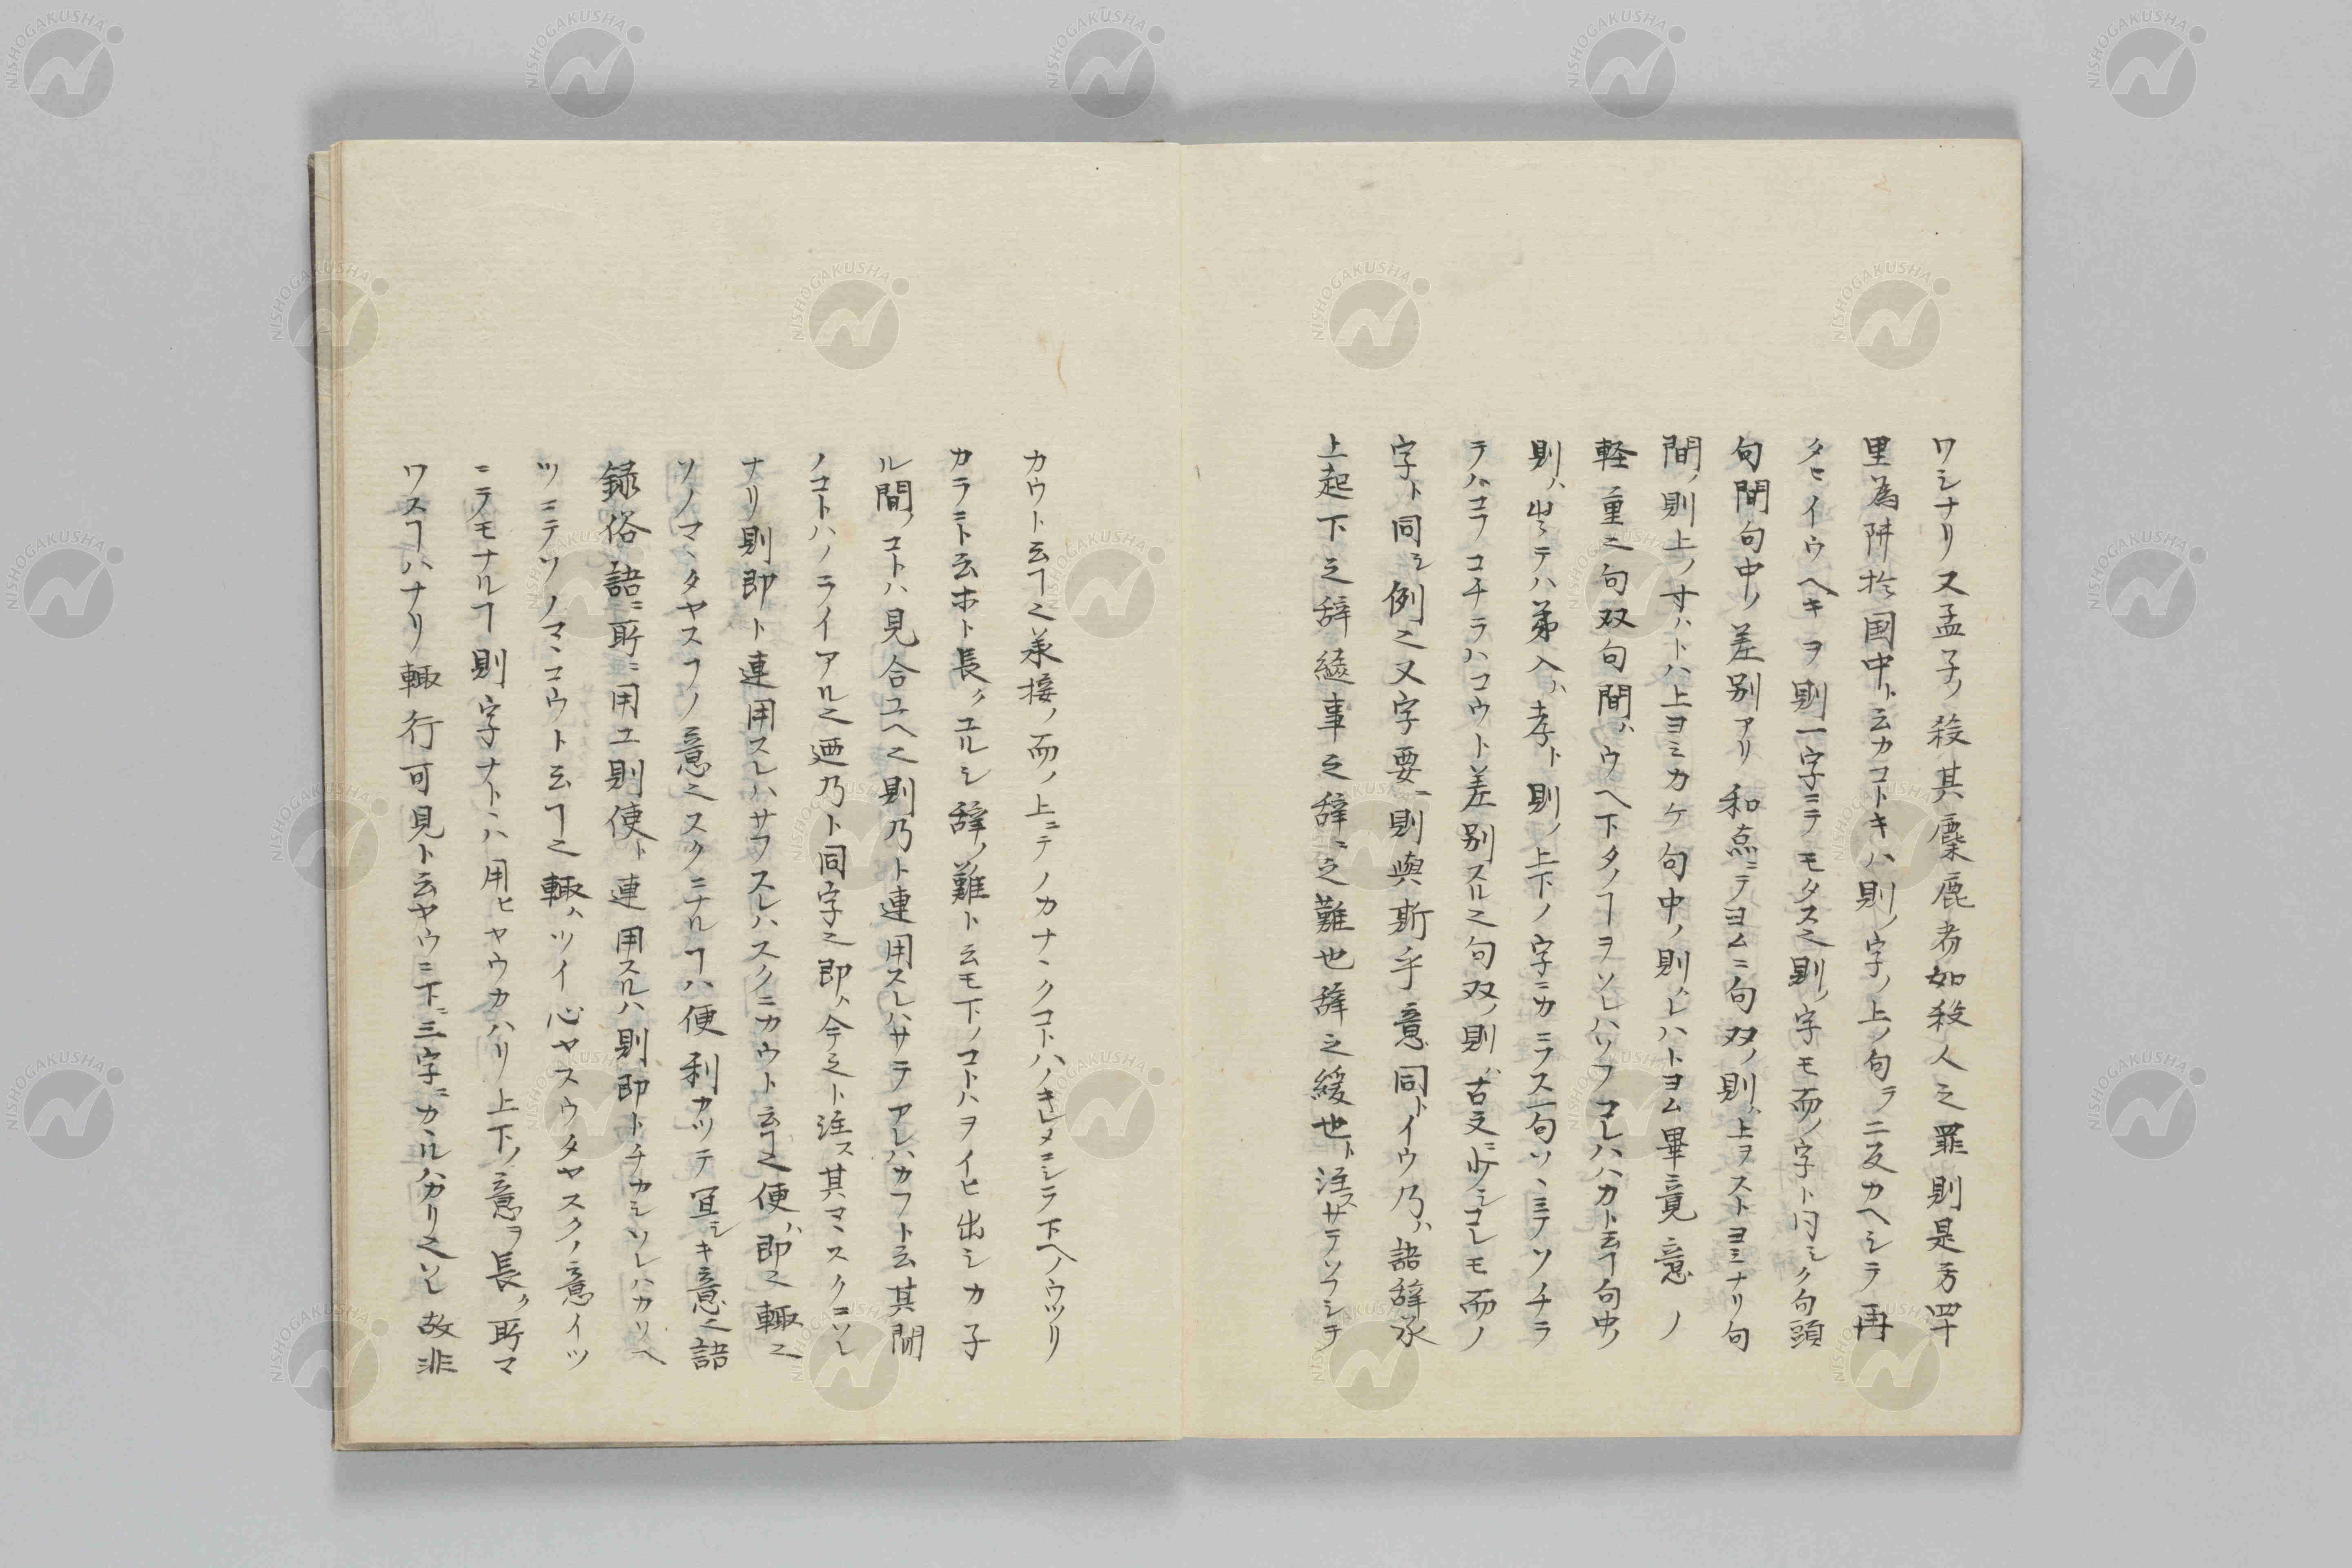 ワシナリ又孟子ノ殺其麋鹿者如殺人之罪則是方四十
里為阱於国中ト云カコトキハ則ノ字ノ上ノ句ヲ二反カヘシテ再
タヒイウヘキヲ則一字ニテモタス之則ノ字モ而ノ字ト同シク句頭
句間句中ノ差別アリ和点ニテヨムニ句双ノ則ハ上ヲストヨミナリ句
間ノ則上ノ寸ハトハ上ヨミカケ句中ノ則ハレハトヨム畢竟意ノ
軽重之句双句間ハウヘ下タノヿヲソレハソフコレハハカト云ヿ句中ノ
則ハ出テハ弟入ハ孝ト則ノ上下ノ字ニカニフス一句ソヽミテソチラ
テハコフコチラハコウト差別スル之句双ノ則ハ古文ニ少シコレモ而ノ
字ト同シ例之又字要ニ則與斯乎意同トイウ乃ハ語辞承
上起下之辞継事之辞ニ之難也辞之緩也ト注スサテソフシテ
カウト云ヿ之承接ノ而ノ上ニテノカナヽクコトハノキレメニシテ下ヘノウツリ
カラニト云ホト長クユルシ辞ノ難ト云モ下ノコトハヲイヒ出シカ子
ル間ノコトハ見合ユヘ之則乃ト連用スレハサテアレハカフト云其間
ノコトハノニライアル之迺乃ト同字之即ハ今之ト注ス其マヽスクニソレ
ナリ則即ト連用スレハサフスレハスクニカウト云ヿ之便ハ即之輙之
ソノマヽタヤスフノ意之スクニナルヿハ便利カツテ冝シキ意之語
録俗語ニ所ニ用ユ則便ト連用スルハ則即トチカシソレハカリヘ
ツニテソノマヽコウト云ヿ之輙ハツイ心ヤスウタヤスクノ意イツ
ニテモナルヿ則字ナトヽハ用ヒヤウカハリ上下ノ意ヲ長ク所マ
ワスヿハナリ輙行可見ト云ヤウニ下ニ三字ニカヽルハカリ之ソレ故非